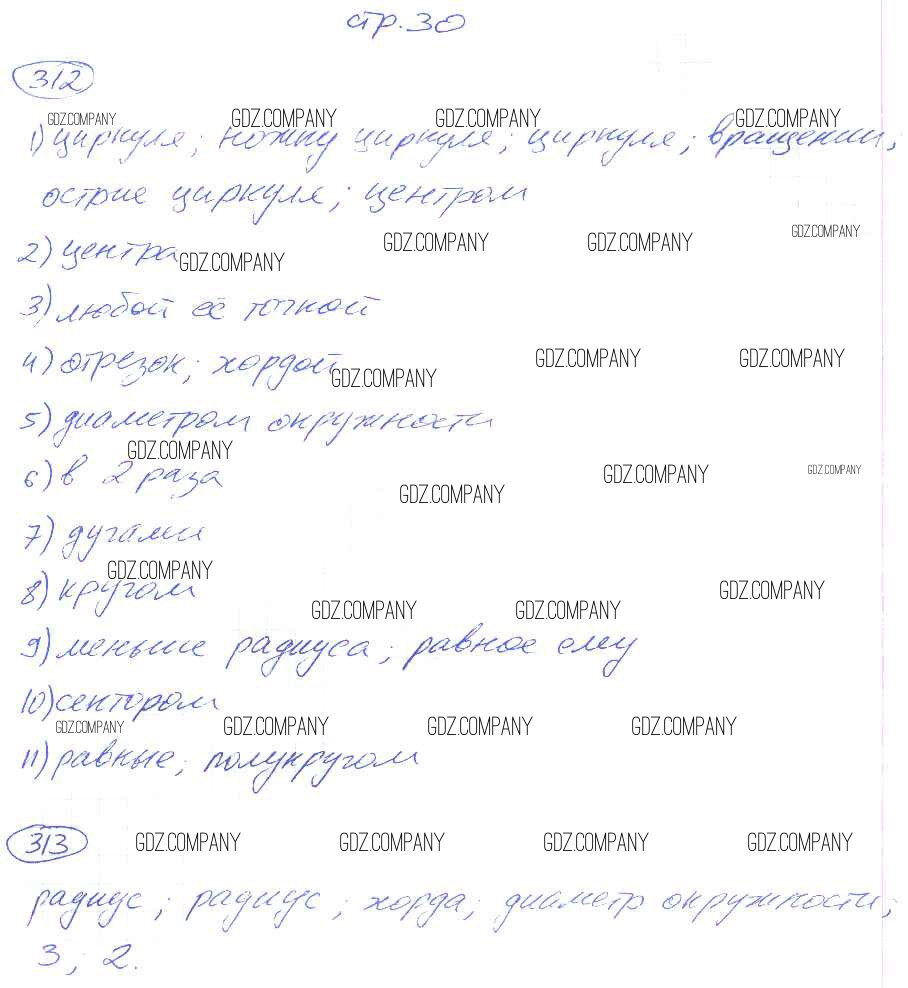 стр. 30
312
GDZ.COMPANY GDZ.COMPANY GDZ.COMPANY GDZ.COMPANY
1) циркуля; ножку циркуля; циркуля; вращении;
острие циркуля; центром
GDZ.COMPANY GDZ.COMPANY GDZ.COMPANY
2) центра GDZ.COMPANY
3) любой её точкой
4) отрезок; хордой GDZ.COMPANY GDZ.COMPANY GDZ.COMPANY
5) диаметром окружности
GDZ.COMPANY
6) в 2 раза GDZ.COMPANY GDZ.COMPANY
GDZ.COMPANY
7) дугами
GDZ.COMPANY
8) кругом GDZ.COMPANY
GDZ.COMPANY GDZ.COMPANY
9) меньше радиуса; равное ему
10) сектором
GDZ.COMPANY GDZ.COMPANY GDZ.COMPANY GDZ.COMPANY
11) равные; полукругом
313 GDZ.COMPANY GDZ.COMPANY GDZ.COMPANY GDZ.COMPANY
радиус; радиус; хорда; диаметр окружности;
3; 2.